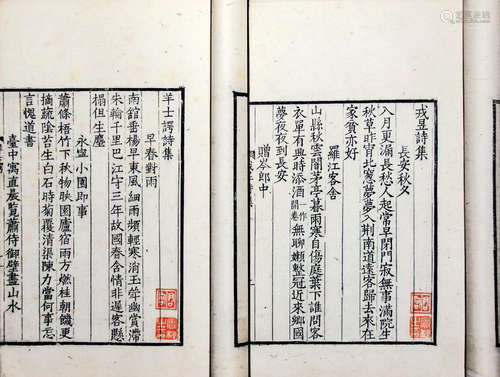 戎昱詩集
長安秋夕
八月更漏長秋人起常早閉門寂無事滿院生
秋草昨宵北窓夢夢入荆南道遠客歸去來在
家貧亦好
羅江客舍
山縣秋雲闇茅亭暮雨寒自傷庭葉下誰問客
衣單有興時添酒一作無聊嬾整冠近來鄉國
夢夜夜到長安
贈岑郎中
羊士諤詩集
早春對雨
南館垂楊早東風細雨頻輕寒消玉斝幽賞滯
朱輪千里巴江守三年故國春含情非遲客懸
榻但生塵
永寧小園即事
蕭條梧竹下秋物映園廬宿雨方燃桂朝饑更
摘蔬陰苔生白石時菊覆清渠陳力當何事忘
言愧道書
臺中寓直晨覽蕭侍御壁畫山水